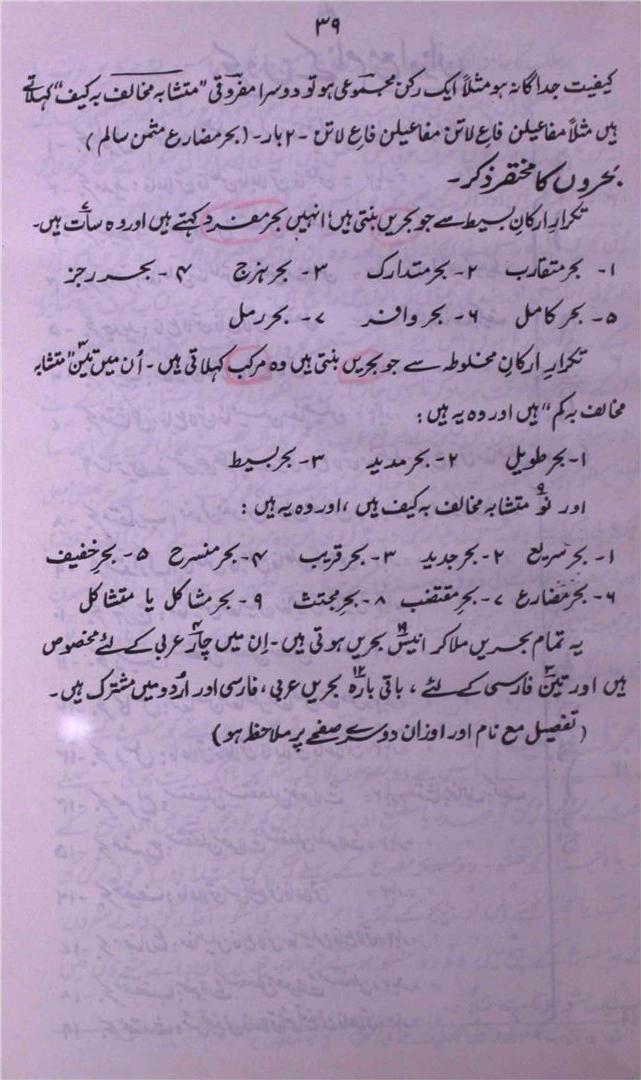 ۳۹
کیفیت جداگانہ ہو مثلاً ایک رکن مجموعی ہو تو دوسرا مفروقی “متشابہ مخالف بہ کیف” کہلاتے
ہیں مثلاً مفاعیلن فاعِ لاتن مفاعیلن فاعِ لاتن - ۲ بار - (بحر مضارع مثمن سالم)
بحروں کا مختصر ذکر -
تکرارِ ارکانِ بسیط سے جو بحریں بنتی ہیں؛ انہیں بحر مفرد کہتے ہیں اور وہ سات ہیں۔
۱- بحر متقارب ۲- بحر متدارک ۳- بحر ہزج ۴- بحر رجز
۵- بحر کامل ۶- بحر وافر ۷- بحر رمل
تکرارِ ارکانِ مخلوطہ سے جو بحریں بنتی ہیں وہ مرکب کہلاتی ہیں - اُن میں تین۳ “متشابہ
مخالف بہ کم” ہیں اور وہ یہ ہیں :
۱- بحر طویل ۲- بحر مدید ۳- بحر بسیط
اور نو۹ متشابہ مخالف بہ کیف ہیں ، اور وہ یہ ہیں :
۱- بحر سریع ۲- بحر جدید ۳- بحر قریب ۴- بحر منسرح ۵- بحر خفیف
۶- بحر مضارع ۷- بحرِ مقتضب ۸- بحرِ مجتث ۹- بحر مشاکل یا متشاکل
یہ تمام بحریں ملا کر انیس۱۹ بحریں ہوتی ہیں - اِن میں چار۴ عربی کے لئے مخصوص
ہیں اور تین۳ فارسی کے لئے ، باقی بارہ۱۲ بحریں عربی ، فارسی اور اُردو میں مشترک ہیں -
(تفصیل مع نام اور اوزان دوسرے صفحے پر ملاحظہ ہو)